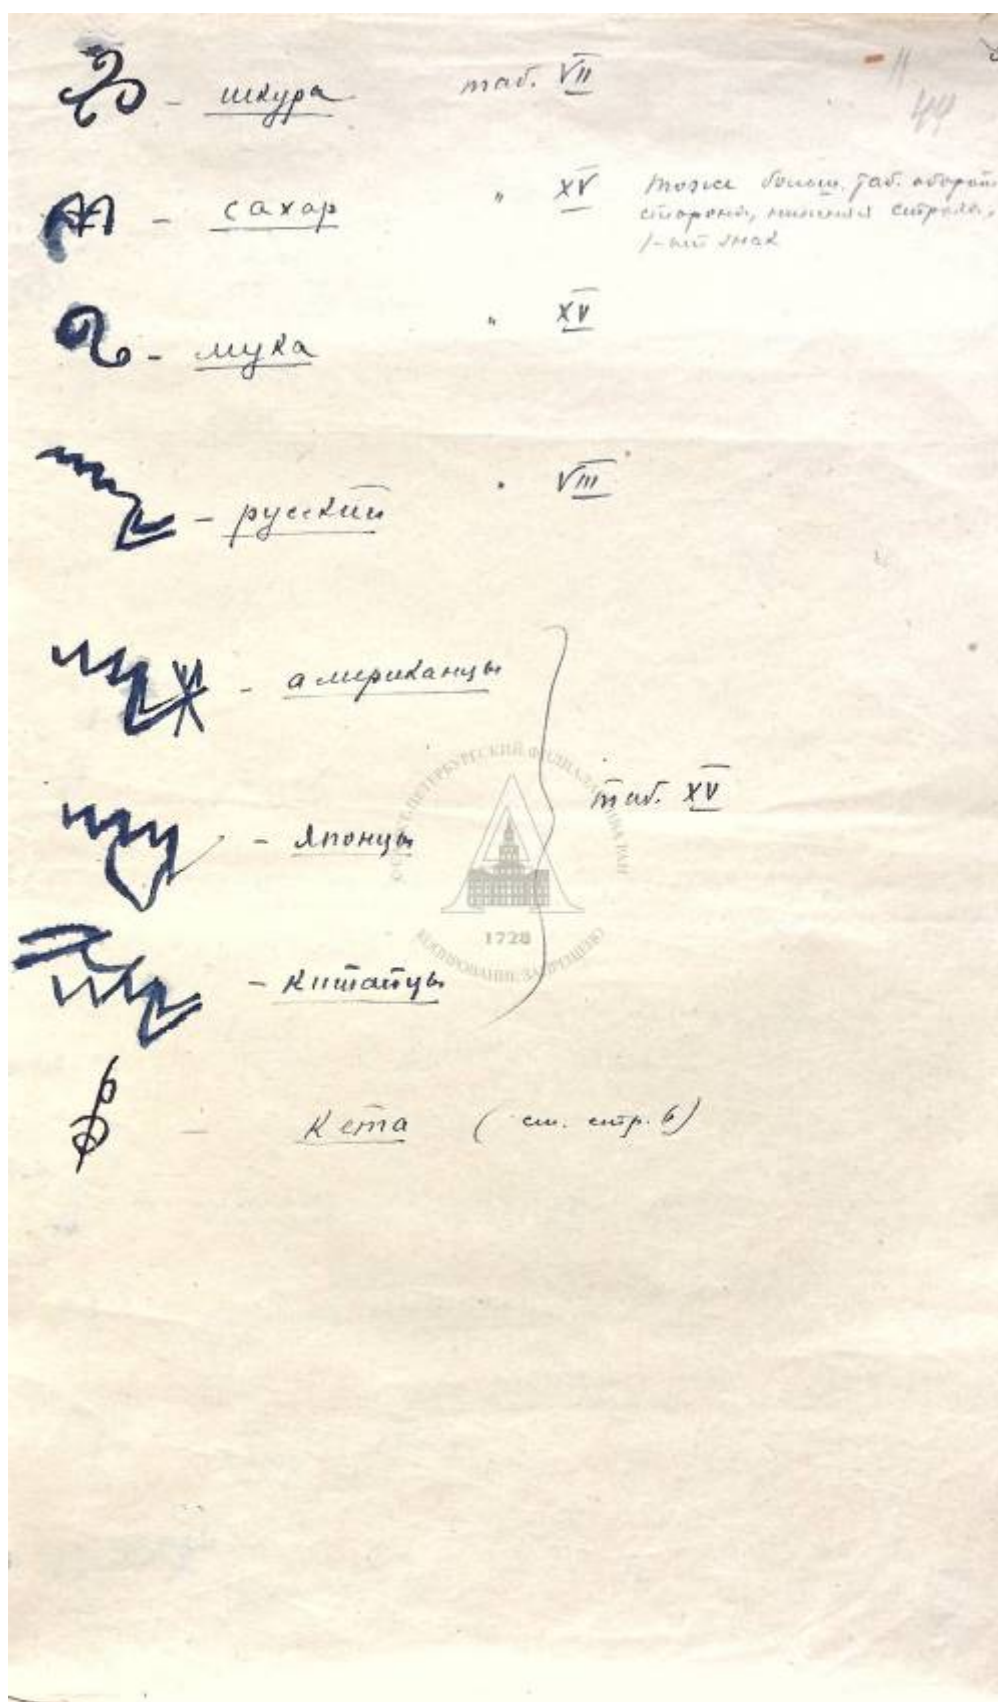 11
44
– шкура таб. VII
– сахар " XV тоже больш. таб. оборотн.
сторона, нижняя строка,
1-ый знак
– мука " XV
– русский " VIII
– американцы
– японцы таб. XV
– китайцы
– кета (см. стр. 6)
САНКТ-ПЕТЕРБУРГСКИЙ ФИЛИАЛ АРХИВА РАН
1728
КОПИРОВАНИЕ ЗАПРЕЩЕНО